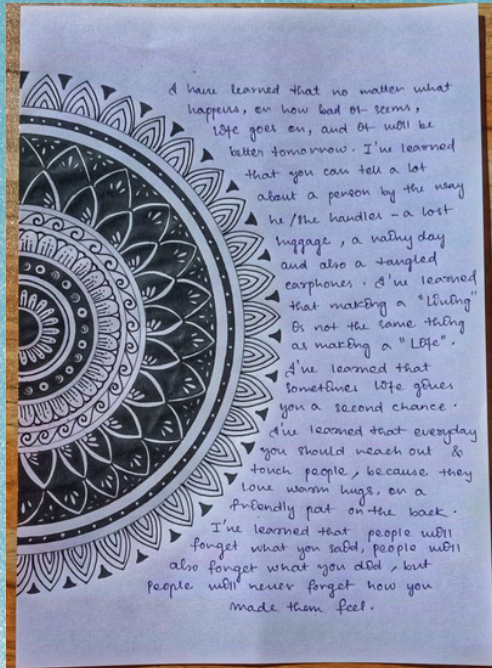 I have learned that no matter what
happens, or how bad it seems,
life goes on, and it will be
better tomorrow. I've learned
that you can tell a lot
about a person by the way
he/she handles - a lost
luggage, a rainy day
and also a tangled
earphones. I've learned
that making a "Living"
is not the same thing
as making a "Life".
I've learned that
sometimes life gives
you a second chance.
I've learned that everyday
you should reach out &
touch people, because they
love warm hugs, or a
friendly pat on the back.
I've learned that people will
forget what you said, people will
also forget what you did, but
people will never forget how you
made them feel.